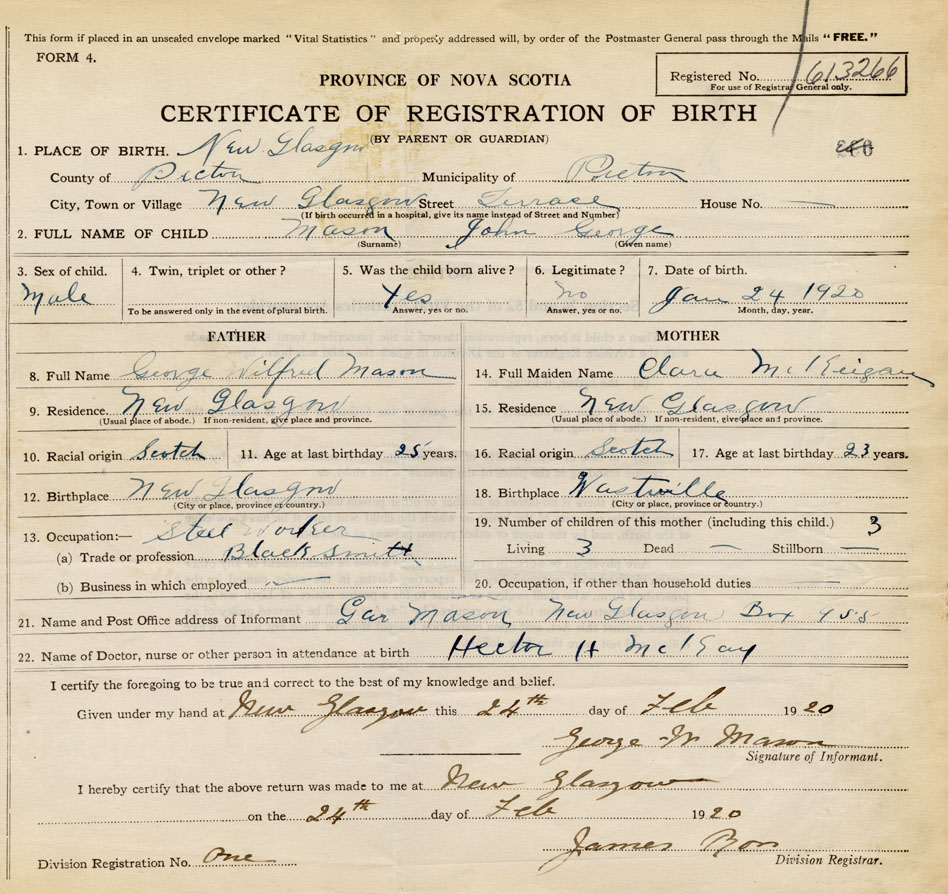 This form if placed in an unsealed envelope marked "Vital Statistics" and properly addressed will, by order of the Postmaster General pass through the Mails "FREE."
FORM 4.
PROVINCE OF NOVA SCOTIA
Registered No. 613266
For use of Registrar General only.
CERTIFICATE OF REGISTRATION OF BIRTH
(BY PARENT OR GUARDIAN)
1. PLACE OF BIRTH. New Glasgow
County of Pictou Municipality of Pictou
City, Town or Village New Glasgow Street Terrace House No. —
(If birth occurred in a hospital, give its name instead of Street and Number)
2. FULL NAME OF CHILD Mason John George
(Surname) (Given name)
3. Sex of child. 4. Twin, triplet or other? 5. Was the child born alive? 6. Legitimate? 7. Date of birth.
Male Yes no Jan 24 1920
To be answered only in the event of plural birth. Answer, yes or no. Answer, yes or no. Month, day, year.
FATHER MOTHER
8. Full Name George Wilfred Mason 14. Full Maiden Name Clara McKeigan
9. Residence. New Glasgow 15. Residence New Glasgow
(Usual place of abode.) If non-resident, give place and province. (Usual place of abode.) If non-resident, give place and province.
10. Racial origin Scotch 11. Age at last birthday 25 years. 16. Racial origin Scotch 17. Age at last birthday 23 years.
12. Birthplace New Glasgow 18. Birthplace Westville
(City or place, province or country.) (City or place, province or country.)
13. Occupation:— Steel Worker 19. Number of children of this mother (including this child.) 3
(a) Trade or profession Black Smith Living 3 Dead — Stillborn —
(b) Business in which employed — 20. Occupation, if other than household duties —
21. Name and Post Office address of Informant Geo Mason New Glasgow Box 455
22. Name of Doctor, nurse or other person in attendance at birth Hector H McKay
I certify the foregoing to be true and correct to the best of my knowledge and belief.
Given under my hand at New Glasgow this 24th day of Feb 1920
George W Mason
Signature of Informant.
I hereby certify that the above return was made to me at New Glasgow
on the 24th day of Feb 1920
James Ross
Division Registration No. One Division Registrar.